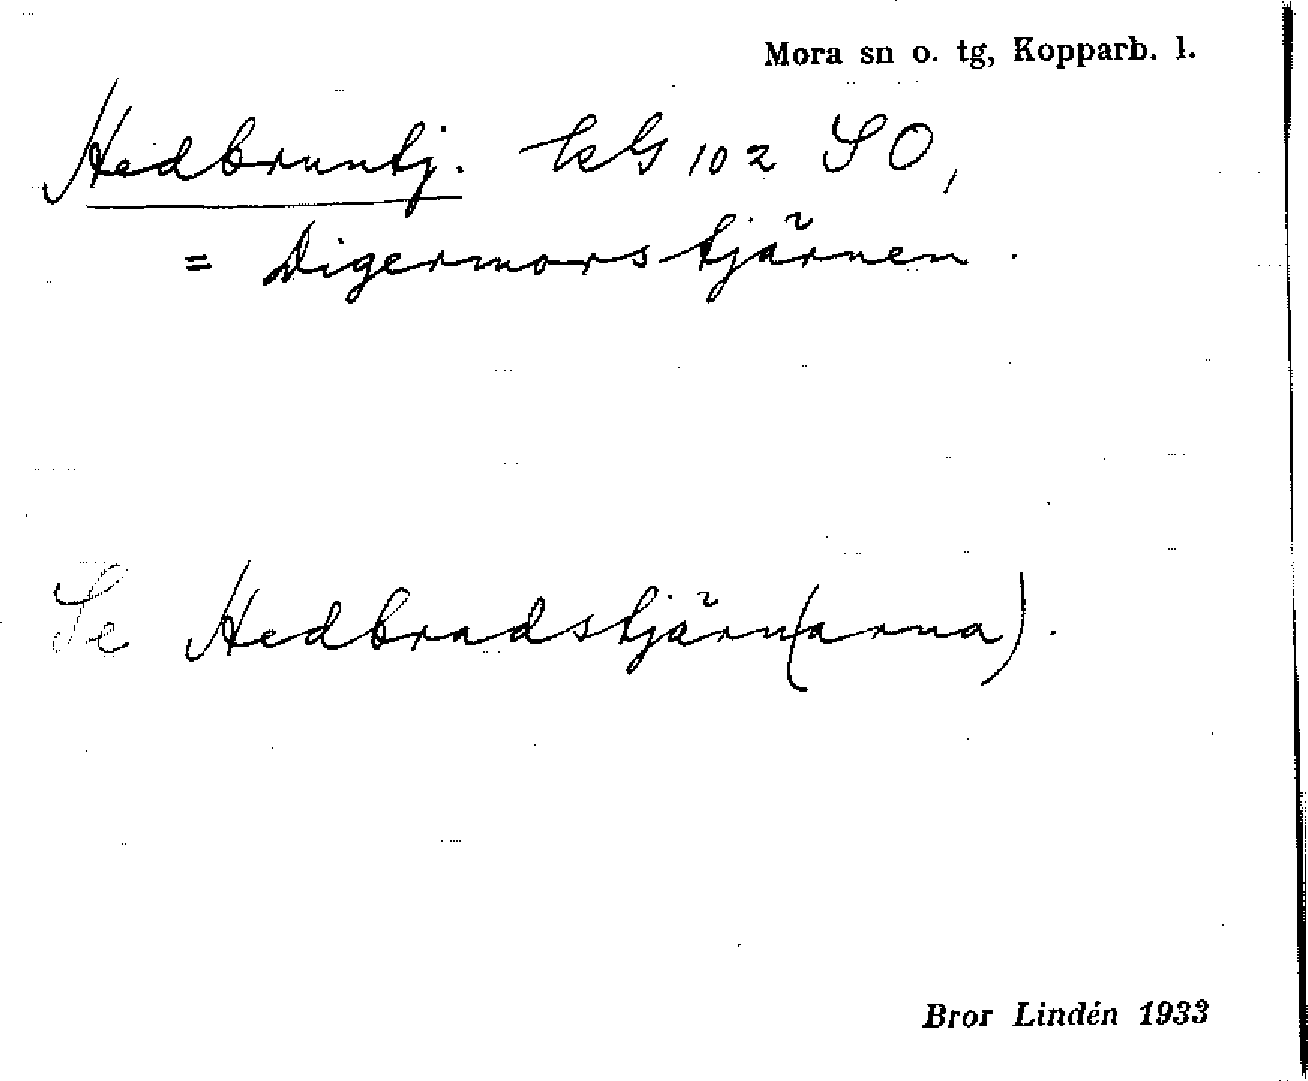 Mora sn o. tg, Kopparb. l.
Hedbruntj. kG 102 SO,
= Digermorstjärnen.
Se Hedbradstjärn(arna).
Bror Lindén 1933